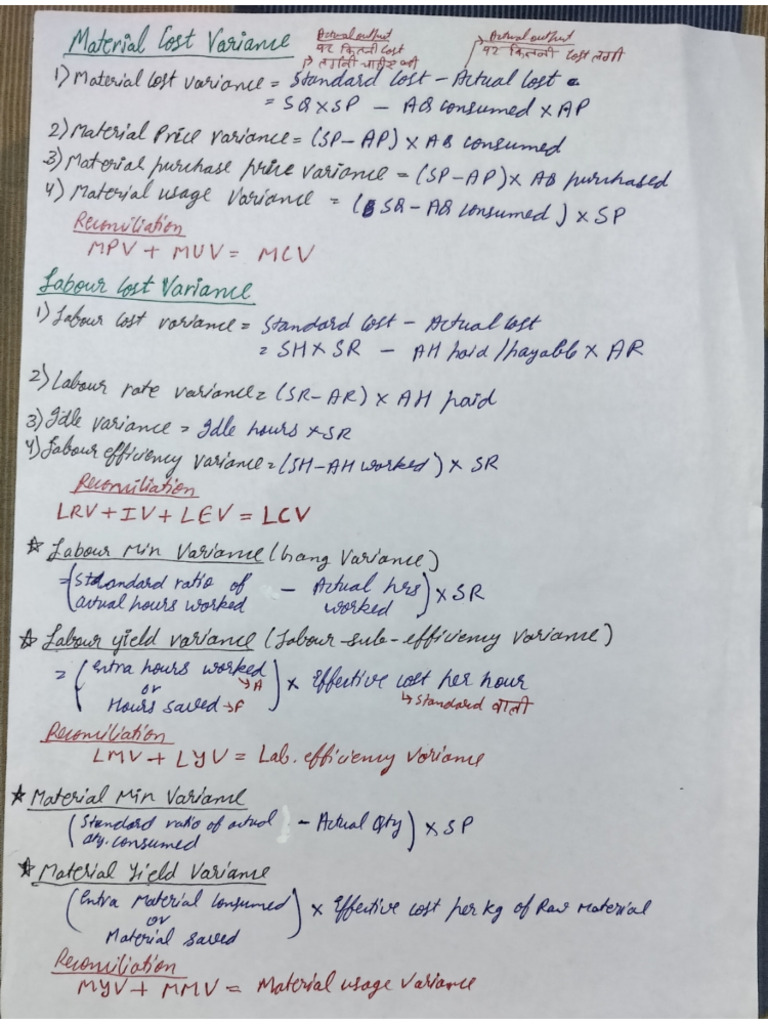 Material Cost Variance
Actual output
पर कितनी Cost
लगनी चाहिए थी
Actual output
पर कितनी Cost लगी
1) Material Cost Variance = Standard Cost - Actual Cost
= SQ x SP - AQ consumed x AP
2) Material Price Variance = (SP - AP) x AQ consumed
3) Material purchase price variance = (SP - AP) x AQ purchased
4) Material usage variance = (SQ - AQ consumed) x SP
Reconciliation
MPV + MUV = MCV
Labour Cost Variance
1) Labour cost variance = Standard Cost - Actual Cost
= SH x SR - AH paid/payable x AR
2) Labour rate variance = (SR - AR) x AH paid
3) Idle variance = Idle hours x SR
4) Labour efficiency variance = (SH - AH worked) x SR
Reconciliation
LRV + IV + LEV = LCV
☆ Labour Mix Variance (Gang Variance)
= (Standard ratio of actual hours worked - Actual hrs worked) x SR
☆ Labour yield variance (Labour sub-efficiency variance)
= (Extra hours worked → A or Hours saved → F) x Effective cost per hour
↳ Standard वाली
Reconciliation
LMV + LYV = Lab. efficiency variance
☆ Material Mix Variance
(Standard ratio of actual qty. consumed - Actual Qty) x SP
☆ Material Yield Variance
(Extra Material Consumed or Material saved) x Effective cost per kg of Raw Material
Reconciliation
MYV + MMV = Material usage variance